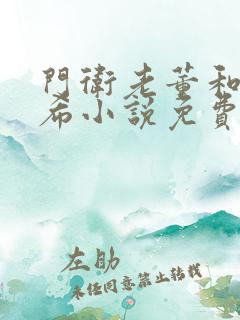 門衛老董和
希小說免費
左助
未經同意禁止轉載